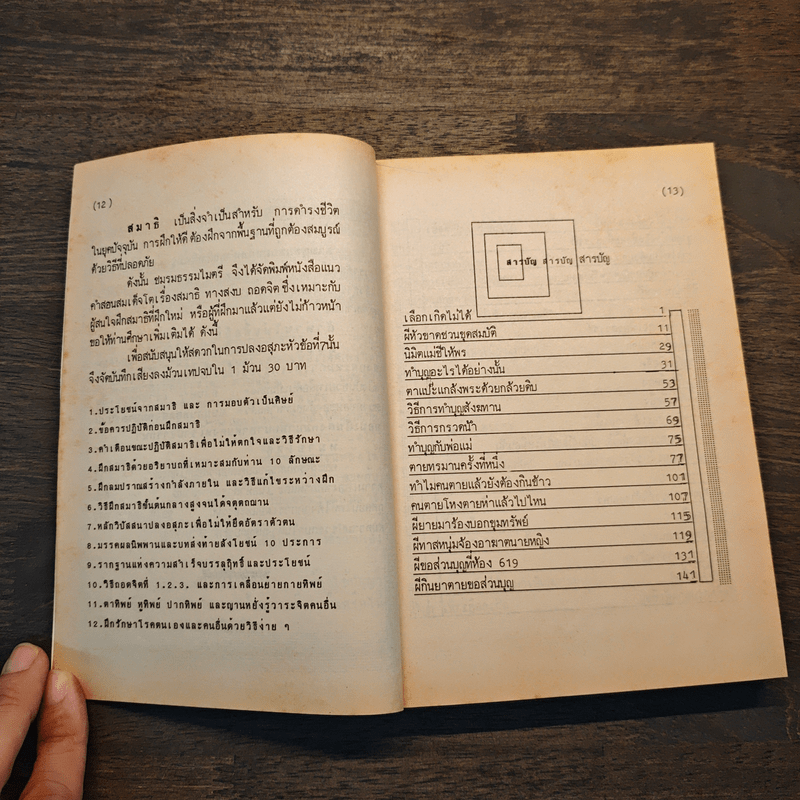 (12)
สมาธิ เป็นสิ่งจำเป็นสำหรับ การดำรงชีวิต
ในยุคปัจจุบัน การฝึกให้ดี ต้องฝึกจากพื้นฐานที่ถูกต้องสมบูรณ์
ด้วยวิธีที่ปลอดภัย
ดังนั้น ชมรมธรรมไมตรี จึงได้จัดพิมพ์หนังสือแนว
คำสอนสมเด็จโตเรื่องสมาธิ ทางสงบ ถอดจิต ซึ่งเหมาะกับ
ผู้สนใจฝึกสมาธิที่ฝึกใหม่ หรือผู้ที่ฝึกมาแล้วแต่ยังไม่ก้าวหน้า
ขอให้ท่านศึกษาเพิ่มเติมได้ ดังนี้
เพื่อสนับสนุนให้สดวกในการปลงอสุภะหัวข้อที่7นั้น
จึงจัดบันทึกเสียงลงม้วนเทปจบใน 1 ม้วน 30 บาท
1.ประโยชน์จากสมาธิ และ การมอบตัวเป็นศิษย์
2.ข้อควรปฏิบัติก่อนฝึกสมาธิ
3.คำเตือนขณะปฏิบัติสมาธิเพื่อไม่ให้ตกใจและวิธีรักษา
4.ฝึกสมาธิด้วยอริยาบถที่เหมาะสมกับท่าน 10 ลักษณะ
5.ฝึกลมปราณสร้างกำลังภายใน และวิธีแก้ไขระหว่างฝึก
6.วิธีฝึกสมาธิขั้นต้นกลางสูงจนได้จตุตถฌาน
7.หลักวิปัสสนาปลงอสุภะเพื่อไม่ให้ยึดอัตราตัวตน
8.มรรคผลนิพพานและบทส่งท้ายสังโยชน์ 10 ประการ
9.รากฐานแห่งความสำเร็จบรรลุฤทธิ์และประโยชน์
10.วิธีถอดจิตที่ 1.2.3. และการเคลื่อนย้ายกายทิพย์
11.ตาทิพย์ หูทิพย์ ปากทิพย์ และญาณหยั่งรู้วาระจิตคนอื่น
12.ฝึกรักษาโรคตนเองและคนอื่นด้วยวิธีง่าย ๆ
(13)
สารบัญ สารบัญ สารบัญ
เลือกเกิดไม่ได้ 1
ผีหัวขาดชวนขุดสมบัติ 11
นิมิตแม่ชีให้พร 29
ทำบุญอะไรได้อย่างนั้น 31
ตาแป๊ะแกล้งพระด้วยกล้วยดิบ 53
วิธีการทำบุญสังฆทาน 57
วิธีการกรวดน้ำ 69
ทำบุญกับพ่อแม่ 75
ตายทรมานครั้งที่หนึ่ง 77
ทำไมคนตายแล้วยังต้องกินข้าว 101
คนตายโหงตายห่าแล้วไปไหน 107
ผียายมาร้องบอกขุมทรัพย์ 115
ผีทาสหนุ่มจ้องอาฆาตนายหญิง 119
ผีขอส่วนบุญที่ห้อง 619 131
ผีกินยาตายขอส่วนบุญ 141